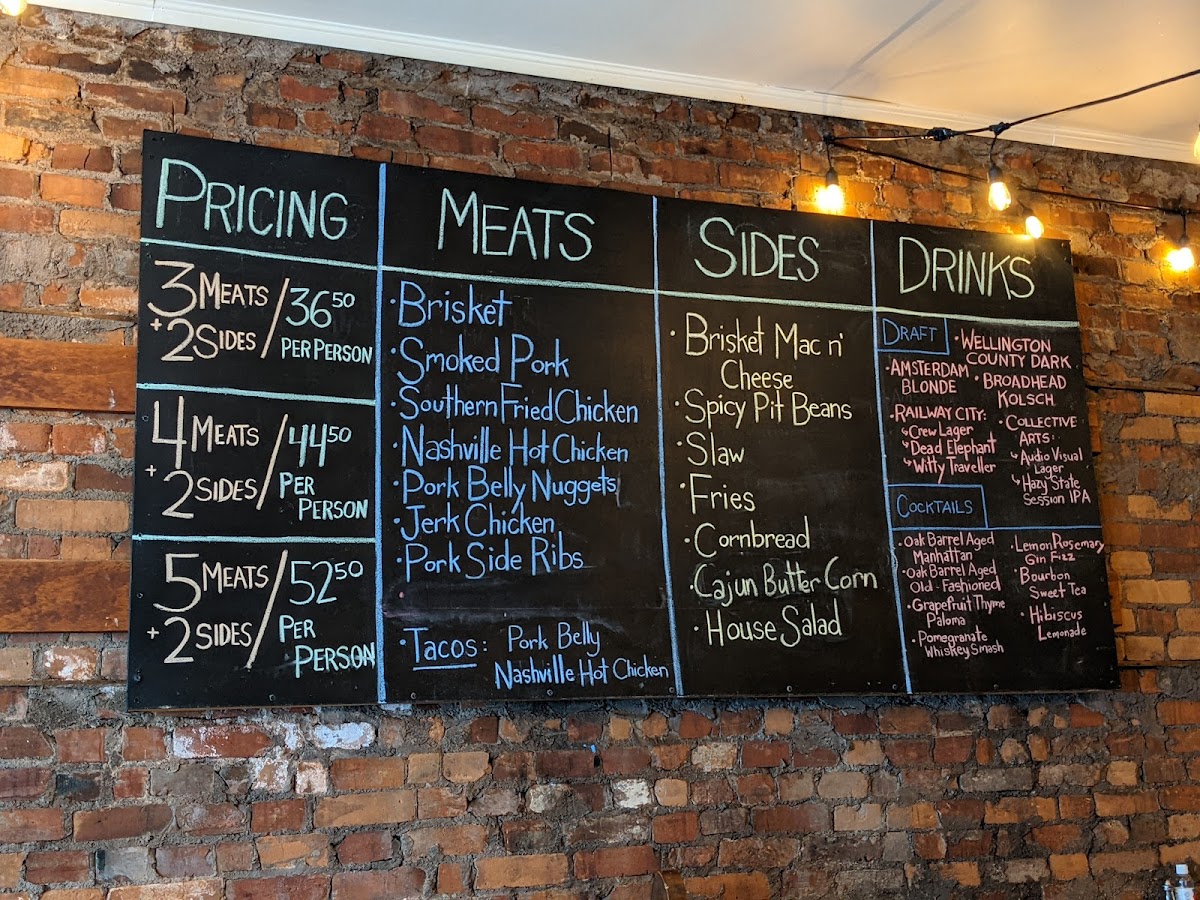 PRICING
3 MEATS
+2 SIDES / 36⁵⁰
PER PERSON
4 MEATS
+2 SIDES / 44⁵⁰
PER
PERSON
5 MEATS
+2 SIDES / 52⁵⁰
PER
PERSON
MEATS
· Brisket
· Smoked Pork
· Southern Fried Chicken
· Nashville Hot Chicken
· Pork Belly Nuggets
· Jerk Chicken
· Pork Side Ribs
· Tacos: Pork Belly
Nashville Hot Chicken
SIDES
· Brisket Mac n'
Cheese
· Spicy Pit Beans
· Slaw
· Fries
· Cornbread
· Cajun Butter Corn
· House Salad
DRINKS
DRAFT
· AMSTERDAM
BLONDE
· RAILWAY CITY:
↳ Crew Lager
↳ Dead Elephant
↳ Witty Traveller
· WELLINGTON
COUNTY DARK
· BROADHEAD
KOLSCH
· COLLECTIVE
ARTS:
↳ Audio Visual
Lager
↳ Hazy State
Session IPA
COCKTAILS
· Oak Barrel Aged
Manhattan
· Oak Barrel Aged
Old-Fashioned
· Grapefruit Thyme
Paloma
· Pomegranate
Whiskey Smash
· Lemon Rosemary
Gin Fizz
· Bourbon
Sweet Tea
· Hibiscus
Lemonade